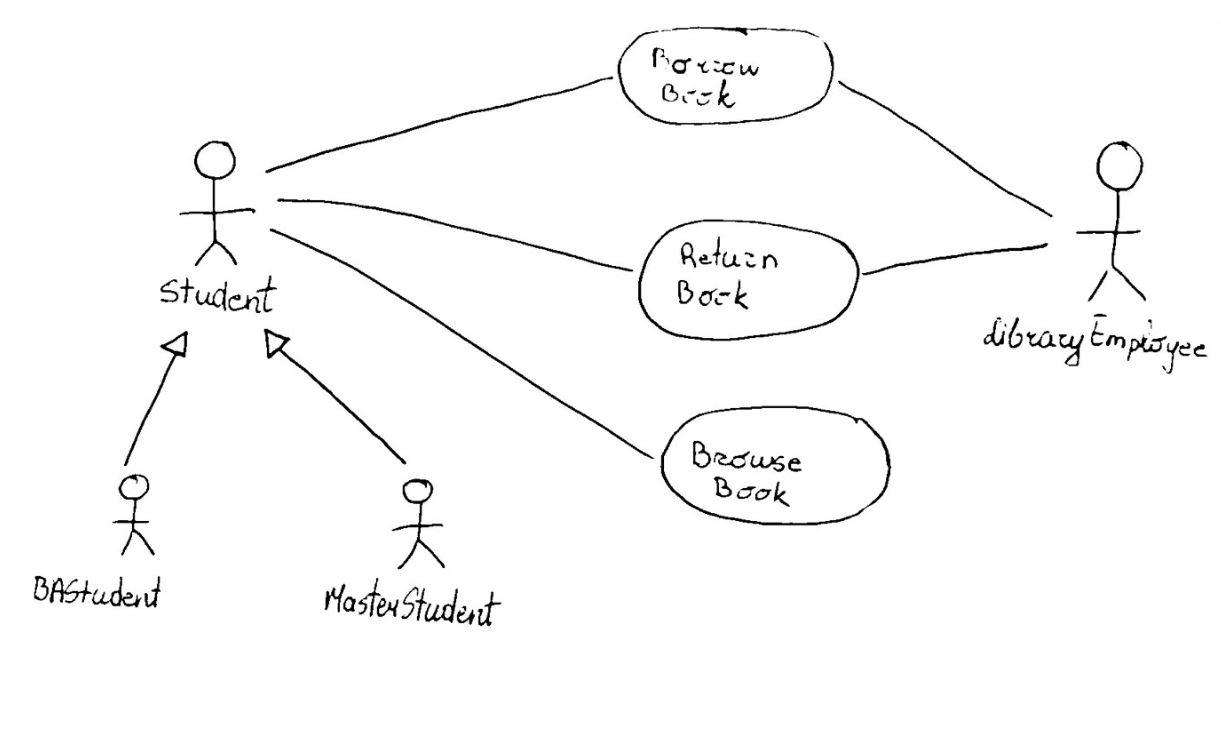 Borrow
Book
Return
Book
Student
LibraryEmployee
Browse
Book
BAStudent
MasterStudent